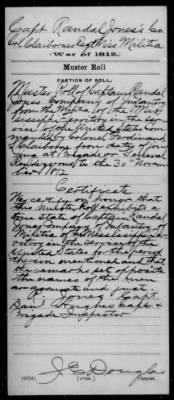 Capt Randal Jones's Co.
Col. Claiborne's Regt Miss Militia
(War of 1812.)
Muster Roll
CAPTION OF ROLL.
Muster Roll of Captain Randal
Jones Company of Infantry
from the Militia of the Mis-
sissippi Territory in the Ser-
vice of the United States com-
manded by Colonel Ferdinand
L Claiborne from date of join-
ing at Brigade or General
Rendezvous to the 30 Novem-
ber 1812
Certificate
We certify on honor that
the Muster Roll exhibits a
true state of Captain Randal
Jones Company of Infantry
Militia of the Mississippi Ter-
ritory in the service of the
United States for the period
therein mentioned and that
the remarks set opposite
the names of the men
are accurate and just.
R. Jones, Capt
Dan'l Hughes Capt &
Brigade Inspector
J. E. Douglas
Copyist.